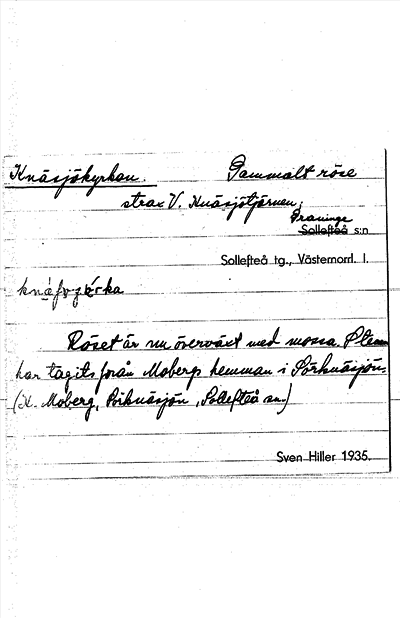 Knäsjökyrkan. Gammalt röse
strax V. Knäsjötjärnen,
Graninge
Sollefteå s:n
Sollefteå tg., Västernorrl. l.
Röset är nu överväxt med mossa. Sten
har tagits från Mobergs hemman i Sörknäsjön.
(K. Moberg, Sörknäsjön, Sollefteå sn.)
Sven Hiller 1935.